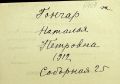 Гончар
Наталия
Петровна
1912
Соборная 25